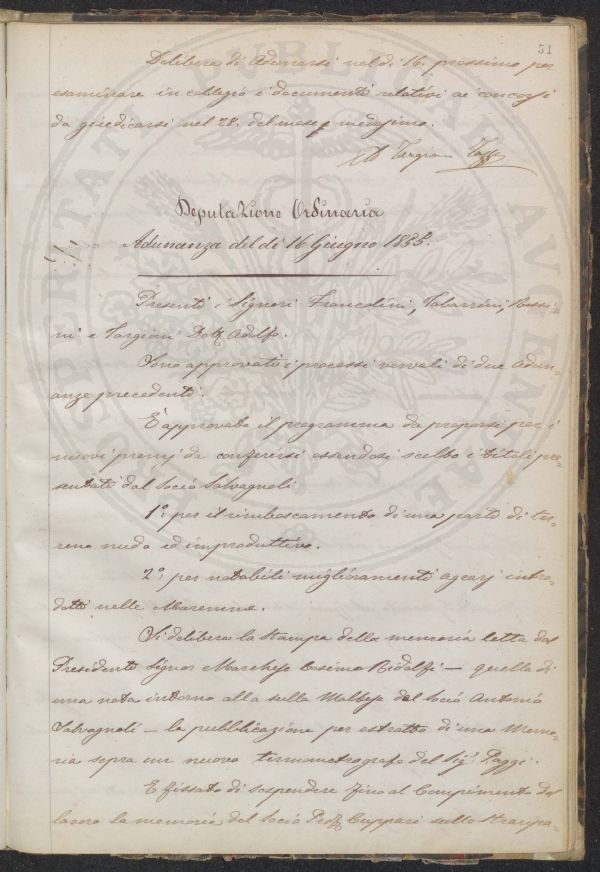 51
Delibera di Adunarsi nel di 16. prossimo per
esaminare in collegio i documenti relativi ai concorsi
da giudicarsi nel 28. del mese medesimo.
Targioni Tozz
Deputazione Ordinaria
Adunanza del di 16 Giugno 1855.
Presenti i Signori Francolini, Tabarrini, Rossi-
ni e Targioni Dott. Adolfo.
Sono approvati i processi verbali di due adun-
anze precedenti.
È approvato il programma da proporsi per i
nuovi premj da conferirsi essendosi scelto i titoli pre-
sentati dal Socio Salvagnoli
1º. per il rimboscamento di una parte di ter-
reno nudo ed improduttivo.
2º. per notabili miglioramenti agrarj intro-
dotti nelle Maremme.
Si delibera la stampa della memoria letta dal
Presidente Signor Marchese Cosimo Ridolfi — quella di
una nota intorno alla sulla Maltese del Socio Antonio
Salvagnoli — la pubblicazione per estratto di una Memo-
ria sopra un nuovo termometrografo del Sigr. Poggi.
È fissato di sospendere fino al Compimento del
lavoro la memoria del Socio Prof. Cuppari sullo
PROSPERITATI PUBLICAE AUGENDAE